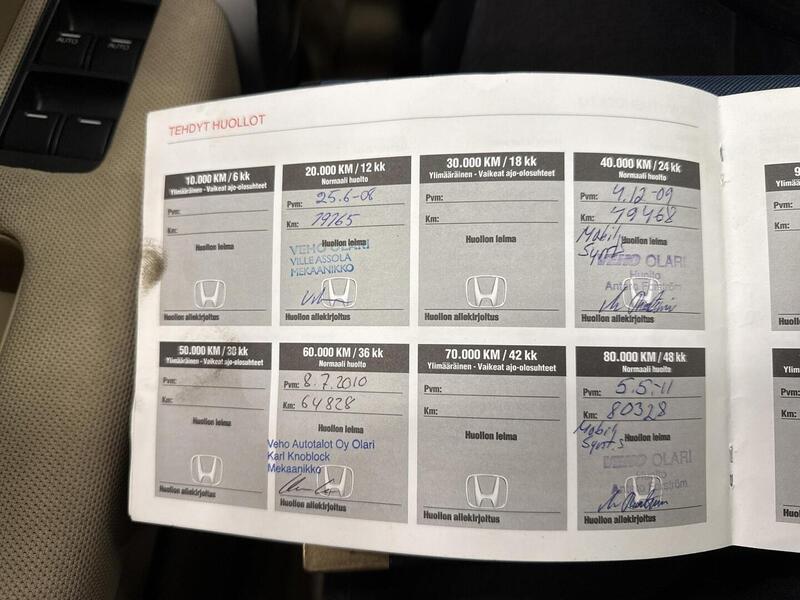 AUTO
AUTO
TEHDYT HUOLLOT
10.000 KM / 6 kk
Ylimääräinen - Vaikeat ajo-olosuhteet
Pvm:
Km:
Huollon leima
Huollon allekirjoitus
20.000 KM / 12 kk
Normaali huolto
Pvm: 25.6-08
Km: 19765
Huollon leima
VEHO OLARI
VILLE ASSOLA
MEKAANIKKO
Huollon allekirjoitus
30.000 KM / 18 kk
Ylimääräinen - Vaikeat ajo-olosuhteet
Pvm:
Km:
Huollon leima
Huollon allekirjoitus
40.000 KM / 24 kk
Normaali huolto
Pvm: 4.12-09
Km: 49468
Huollon leima
VEHO OLARI
Huolto
Antero Forsström
Huollon allekirjoitus
50.000 KM / 30 kk
Ylimääräinen - Vaikeat ajo-olosuhteet
Pvm:
Km:
Huollon leima
Huollon allekirjoitus
60.000 KM / 36 kk
Normaali huolto
Pvm: 8.7.2010
Km: 64828
Huollon leima
Veho Autotalot Oy Olari
Karl Knoblock
Mekaanikko
Huollon allekirjoitus
70.000 KM / 42 kk
Ylimääräinen - Vaikeat ajo-olosuhteet
Pvm:
Km:
Huollon leima
Huollon allekirjoitus
80.000 KM / 48 kk
Normaali huolto
Pvm: 5.5-11
Km: 80328
Huollon leima
VEHO OLARI
Huolto
Antero Forsström
Huollon allekirjoitus